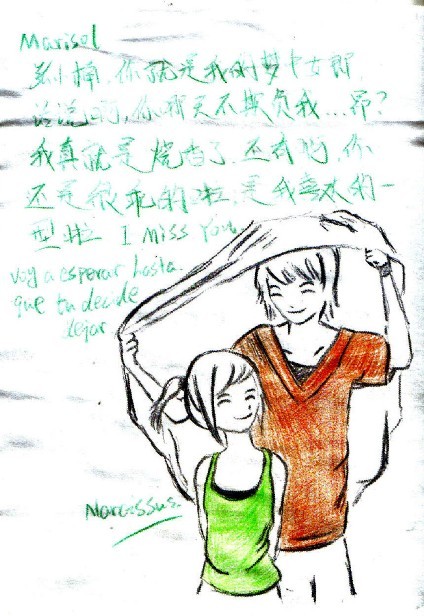 Marisol
你就是我的梦中女郎
你那天不欺负我...昂?
我真就是烧香了.还有哟,你
还是很乖的啦.是我喜欢的一
型啦 I Miss You
voy a esperar hasta
que tu decide
dejar
Narcissus.